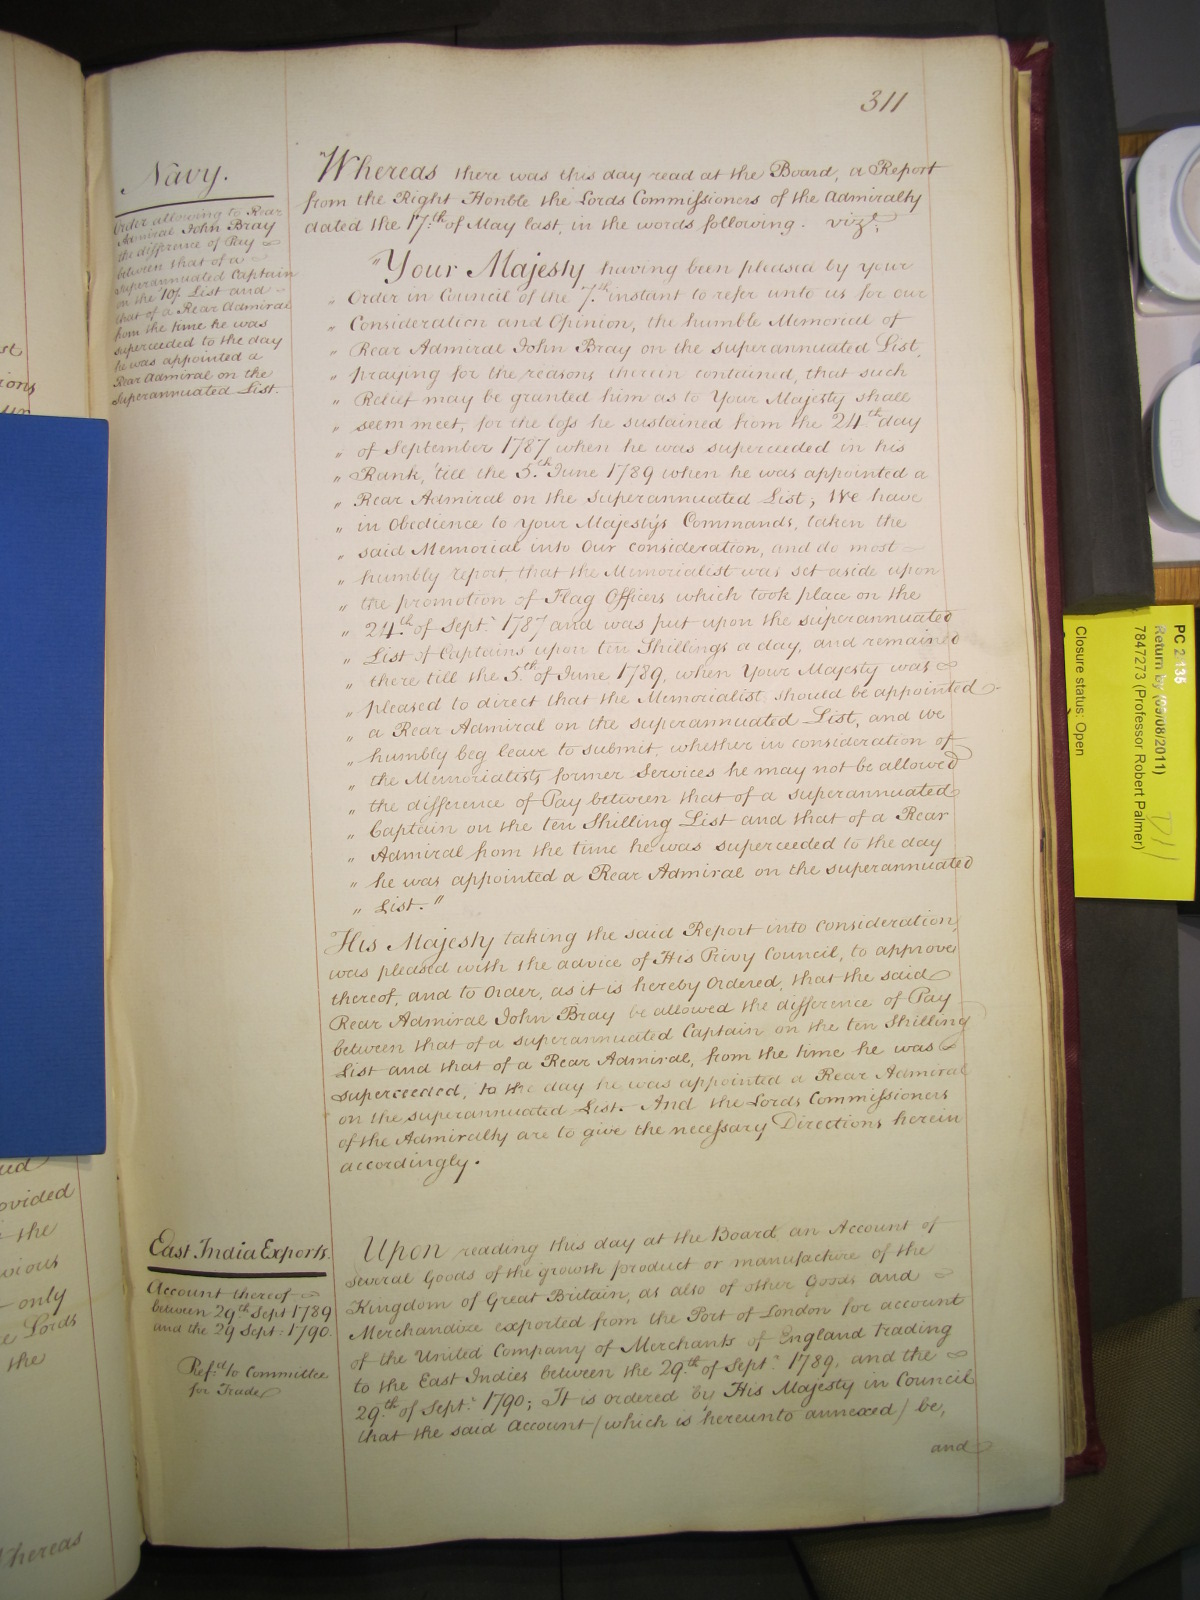 311
Navy.
Order allowing to Rear
Admiral John Bray
the difference of Pay
between that of a
superannuated Captain
on the 10/ List and
that of a Rear Admiral
from the time he was
superceeded to the day
he was appointed a
Rear Admiral on the
Superannuated List.
Whereas there was this day read at the Board, a Report
from the Right Honble the Lords Commissioners of the Admiralty
dated the 17.th of May last, in the words following. vizt.
"Your Majesty having been pleased by your
" Order in Council of the 7.th instant to refer unto us for our
" Consideration and Opinion, the humble Memorial of
" Rear Admiral John Bray on the superannuated List,
" praying for the reasons therein contained, that such
" Relief may be granted him as to Your Majesty shall
" seem meet, for the loss he sustained from the 24.th day
" of September 1787 when he was superceeded in his
" Rank, 'till the 5.th June 1789 when he was appointed a
" Rear Admiral on the superannuated List; We have
" in Obedience to Your Majesty's Commands, taken the
" said Memorial into Our consideration, and do most
" humbly report, that the Memorialist was set aside upon
" the promotion of Flag Officers which took place on the
" 24.th of Sept.r 1787 and was put upon the superannuated
" List of Captains upon ten Shillings a day, and remained
" there till the 5.th of June 1789, when Your Majesty was
" pleased to direct that the Memorialist should be appointed
" a Rear Admiral on the superannuated List, and we
" humbly beg leave to submit, whether in consideration of
" the Memorialists former Services he may not be allowed
" the difference of Pay between that of a superannuated
" Captain on the ten Shilling List and that of a Rear
" Admiral from the time he was superceeded to the day
" he was appointed a Rear Admiral on the superannuated
" List."
His Majesty taking the said Report into consideration,
was pleased with the advice of His Privy Council, to approve
thereof, and to Order, as it is hereby Ordered, that the said
Rear Admiral John Bray be allowed the difference of Pay
between that of a superannuated Captain on the ten Shilling
List and that of a Rear Admiral, from the time he was
superceeded, to the day he was appointed a Rear Admiral
on the superannuated List. And the Lords Commissioners
of the Admiralty are to give the necessary Directions herein
accordingly.
East India Exports.
Account thereof
between 29th Sept 1789
and the 29 Sept: 1790.
Refd. to Committee
for Trade
Upon reading this day at the Board an Account of
several Goods of the growth product or manufacture of the
Kingdom of Great Britain, as also of other Goods and
Merchandize exported from the Port of London for account
of the United Company of Merchants of England trading
to the East Indies between the 29.th of Sept.r 1789, and the
29.th of Sept.r 1790; It is ordered by His Majesty in Council
that the said Account (which is hereunto annexed) be,
and
ions
ovided
the
vious
only
e Lords
the
Whereas
PC 2 135
Return by (09/08/2011)
7847273 (Professor Robert Palmer)
Closure status: Open
D11